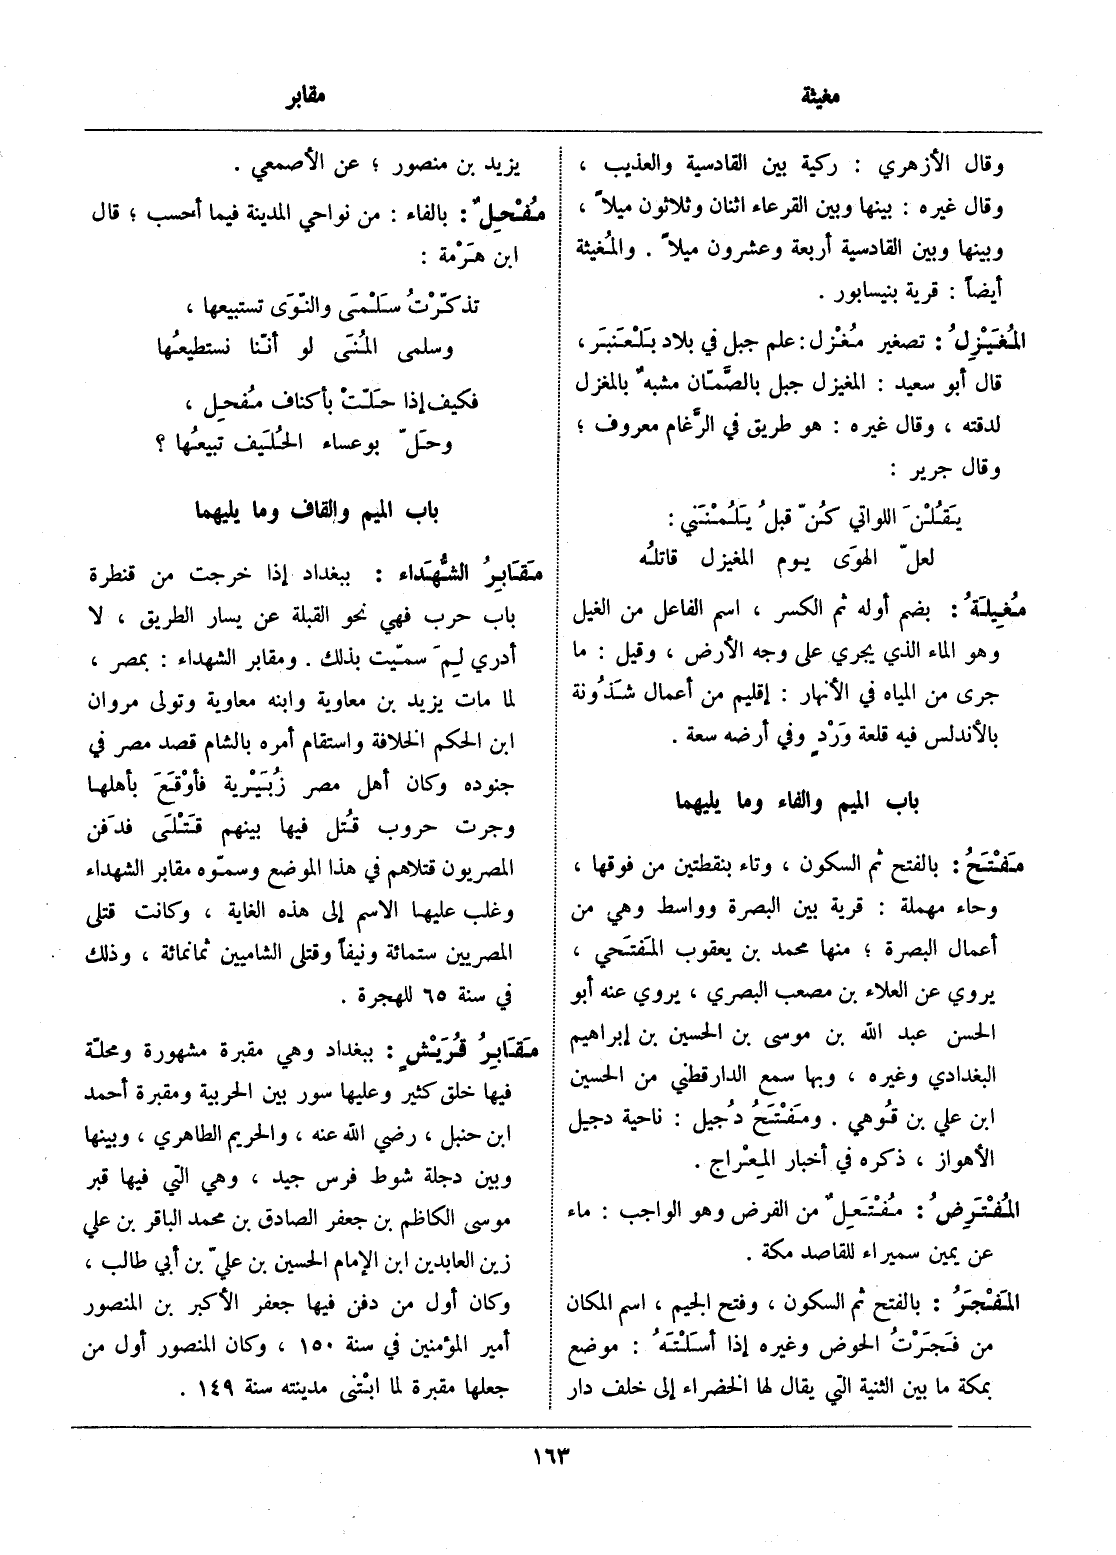 مغيثة
مقابر
وقال الأزهري : ركية بين القادسية والعذيب ،
وقال غيره : بينها وبين القرعاء اثنان وثلاثون ميلاً ،
وبينها وبين القادسية أربعة وعشرون ميلاً . والمُغيثة
أيضاً : قرية بنيسابور .
المُغَيْزِلُ : تصغير مُغْزل : علم جبل في بلاد بَلْعَنبَر ،
قال أبو سعيد : المغيزل جبل بالصَّمّان مشبهٌ بالمغزل
لدقته ، وقال غيره : هو طريق في الرَّغام معروف ؛
وقال جرير :
يَقُلْنَ اللواتي كُنّ قبلُ يَلُمْنَني :
لعلّ الهوَى يوم المغيزل قاتلُه
مُغِيلَةُ : بضم أوله ثم الكسر ، اسم الفاعل من الغيل
وهو الماء الذي يجري على وجه الأرض ، وقيل : ما
جرى من المياه في الأنهار : إقليم من أعمال شَذُونة
بالأندلس فيه قلعة وَرْدٍ وفي أرضه سعة .
باب الميم والفاء وما يليهما
مَفْتَحُ : بالفتح ثم السكون ، وتاء بنقطتين من فوقها ،
وحاء مهملة : قرية بين البصرة وواسط وهي من
أعمال البصرة ؛ منها محمد بن يعقوب المَفتَحي ،
يروي عن العلاء بن مصعب البصري ، يروي عنه أبو
الحسن عبد الله بن موسى بن الحسين بن إبراهيم
البغدادي وغيره ، وبها سمع الدارقطني من الحسين
ابن علي بن قُوهي . ومَفْتَحُ دُجيل : ناحية دجيل
الأهواز ، ذكره في أخبار المِعْراج .
المُفْتَرِضُ : مُفْتَعِلٌ من الفرض وهو الواجب : ماء
عن يمين سميراء للقاصد مكة .
المَفْجَرُ : بالفتح ثم السكون ، وفتح الجيم ، اسم المكان
من فَجَرْتُ الحوض وغيره إذا أسَلْتَهُ : موضع
بمكة ما بين الثنية التي يقال لها الخضراء إلى خلف دار
يزيد بن منصور ؛ عن الأصمعي .
مُفْحِلٌ : بالفاء : من نواحي المدينة فيما أحسب ؛ قال
ابن هَرْمة :
تذكّرْتُ سَلْمَى والنّوَى تستبيعها ،
وسلمى المُنَى لو أنّنا نستطيعُها
فكيف إذا حَلّتْ بأكناف مُفحِل ،
وحَلّ بوعساء الحُلَيف تبيعُها ؟
باب الميم والقاف وما يليهما
مَقَابِرُ الشُّهَداء : ببغداد إذا خرجت من قنطرة
باب حرب فهي نحو القبلة عن يسار الطريق ، لا
أدري لِمَ سمّيت بذلك . ومقابر الشهداء : بمصر ،
لما مات يزيد بن معاوية وابنه معاوية وتولى مروان
ابن الحكم الخلافة واستقام أمره بالشام قصد مصر في
جنوده وكان أهل مصر زُبَيْرية فأوْقَعَ بأهلها
وجرت حروب قُتل فيها بينهم قَتْلَى فدَفن
المصريون قتلاهم في هذا الموضع وسمّوه مقابر الشهداء
وغلب عليها الاسم إلى هذه الغاية ، وكانت قتلى
المصريين ستمائة ونيفاً وقتلى الشاميين ثمانمائة ، وذلك
في سنة ٦٥ للهجرة .
مَقَابِرُ قُرَيْشٍ : ببغداد وهي مقبرة مشهورة ومحلّة
فيها خلق كثير وعليها سور بين الحربية ومقبرة أحمد
ابن حنبل ، رضي الله عنه ، والحريم الطاهري ، وبينها
وبين دجلة شوط فرس جيد ، وهي التي فيها قبر
موسى الكاظم بن جعفر الصادق بن محمد الباقر بن علي
زين العابدين ابن الإمام الحسين بن عليّ بن أبي طالب ،
وكان أول من دفن فيها جعفر الأكبر بن المنصور
أمير المؤمنين في سنة ١٥٠ ، وكان المنصور أول من
جعلها مقبرة لما ابْتنى مدينته سنة ١٤٩ .
١٦٣